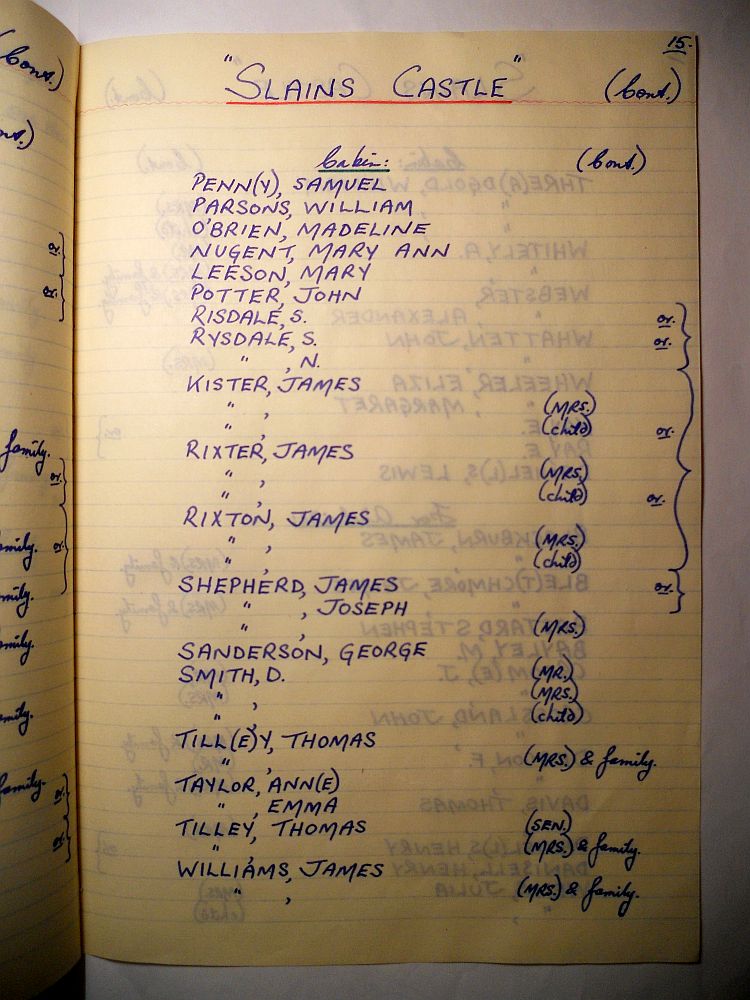 15.
"SLAINS CASTLE" (Cont.)
Cabin: (Cont.)
PENN(Y), SAMUEL
PARSONS, WILLIAM
O'BRIEN, MADELINE
NUGENT, MARY ANN
LEESON, MARY
POTTER, JOHN
RISDALE, S. or.
RYSDALE, S. or.
" , N.
KISTER, JAMES
" , (MRS.)
" , (child) or.
RIXTER, JAMES
" , (MRS.)
" , (child) or.
RIXTON, JAMES
" , (MRS.)
" , (child)
SHEPHERD, JAMES or.
" , JOSEPH
" , (MRS.)
SANDERSON, GEORGE
SMITH, D. (MR.)
" , (MRS.)
" , (child)
TILL(E)Y, THOMAS
" , (MRS.) & family.
TAYLOR, ANN(E)
" , EMMA
TILLEY, THOMAS (SEN.)
" , (MRS.) & family.
WILLIAMS, JAMES
" , (MRS.) & family.
(Cont.)
or.
or.
family.
or.
or.
family.
or.
or.